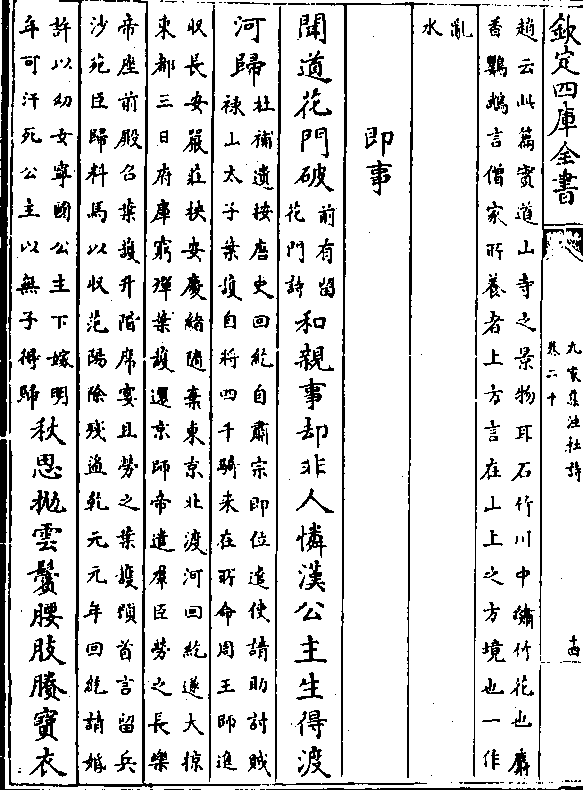 欽定四庫全書
九家集注杜詩
卷二十
十四
趙云此篇實道山寺之景物耳石竹川中繡竹花也麝
香鸚鵡言僧家所養者上方言在山上之方境也一作
亂
水
即事
聞道花門破
前有留
花門詩
和親事却非人憐漢公主生得渡
河歸
杜補遺按唐史回紇自肅宗即位遣使請助討賊
祿山太子葉護自將四千騎來在所命周王師進
收長安嚴莊挾安慶緒随棄東京北渡河回紇遂大掠
東都三日府庫窮殫葉護還京師帝遣羣臣勞之長樂
帝座前殿召葉護升階席宴且勞之葉護頓首言留兵
沙苑臣歸料馬以收范陽除殘盜乾元元年回紇請婚
許以幼女寧國公主下嫁明
年可汗死公主以無子得歸
秋思抛雲鬢腰肢賸寶衣